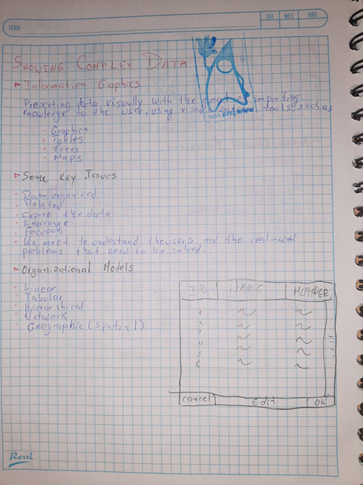 SHOWING COMPLEX DATA
Information Graphics
Presenting data visually with the importing
knowledge to the user, using visual tools such as
Graphics
Tables
Trees
Maps
Some Key Issues
Data organized
Related
Explore the data
Rearrange
Focuses
We meet to undestand the users and the
problems that need to be solved.
Organizational Models
Linear
Tabular
Hierarchical
Network
Geographic (spatial)
ID NAME NUMBER
cancel Edit OK
Real